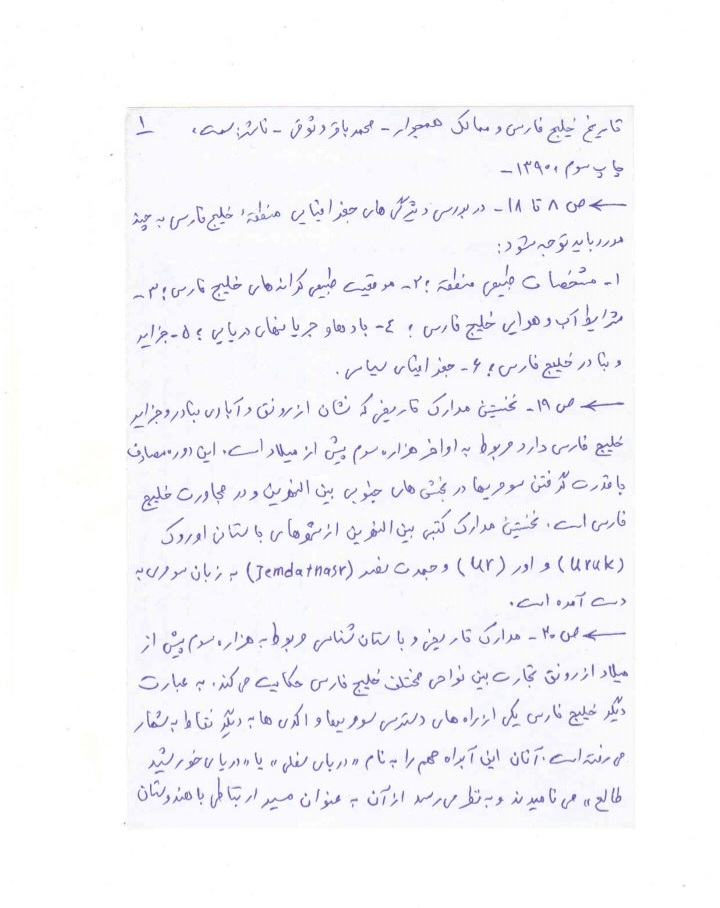 تاریخ خلیج فارس و ممالک همجوار - محمدباقر وثوقی - ناشر: سمت، ۱
چاپ سوم، ۱۳۹۰-
← ص ۸ تا ۱۸- در بررسی ویژگی های جغرافیایی منطقهٔ خلیج فارس به چند
مورد باید توجه شود:
۱- مشخصات طبیعی منطقه؛ ۲- موقعیت طبیعی کرانه های خلیج فارس؛ ۳-
شرایط آب و هوایی خلیج فارس؛ ۴- بادها و جریانهای دریایی؛ ۵- جزایر
و بنادر خلیج فارس؛ ۶- جغرافیای سیاسی.
← ص ۱۹- نخستین مدارک تاریخی که نشان از رونق و آبادی بنادر و جزایر
خلیج فارس دارد مربوط به اواخر هزاره سوم پیش از میلاد است. این دوره مصادف
با قدرت گرفتن سومریها در بخش های جنوبی بین النهرین و در مجاورت خلیج
فارس است. نخستین مدارک کتبی بین النهرین از شهرهای باستان اوروک
(Uruk) و اور (Ur) و جمدت نصر (Jemdatnasr) به زبان سومری به
دست آمده است.
← ص ۲۰- مدارک تاریخی و باستان شناسی مربوط به هزاره سوم پیش از
میلاد از رونق تجارت بین نواحی مختلف خلیج فارس حکایت می کند. به عبارت
دیگر خلیج فارس یکی از راه های دسترسی سومریها و اکدی ها به دیگر نقاط به شمار
می رفته است. آنان این آبراه مهم را به نام «دریای سفلی» یا «دریای خورشید
طالع» می نامیدند و به نظر می رسد از آن به عنوان مسیر ارتباطی با هندوستان